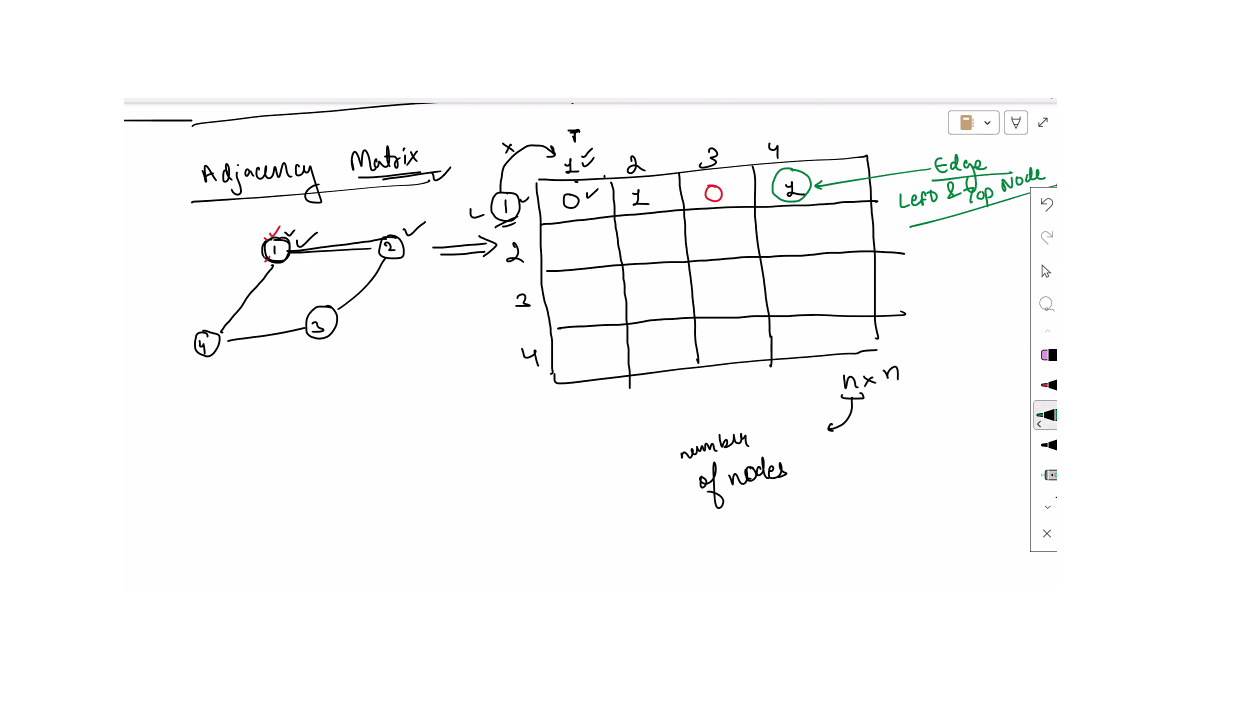 Adjacency Matrix
1 2 3 4
1 0 1 0 1
2
3
4
Edge
Left & Top Node
1 2
3
4
n x n
number
of nodes